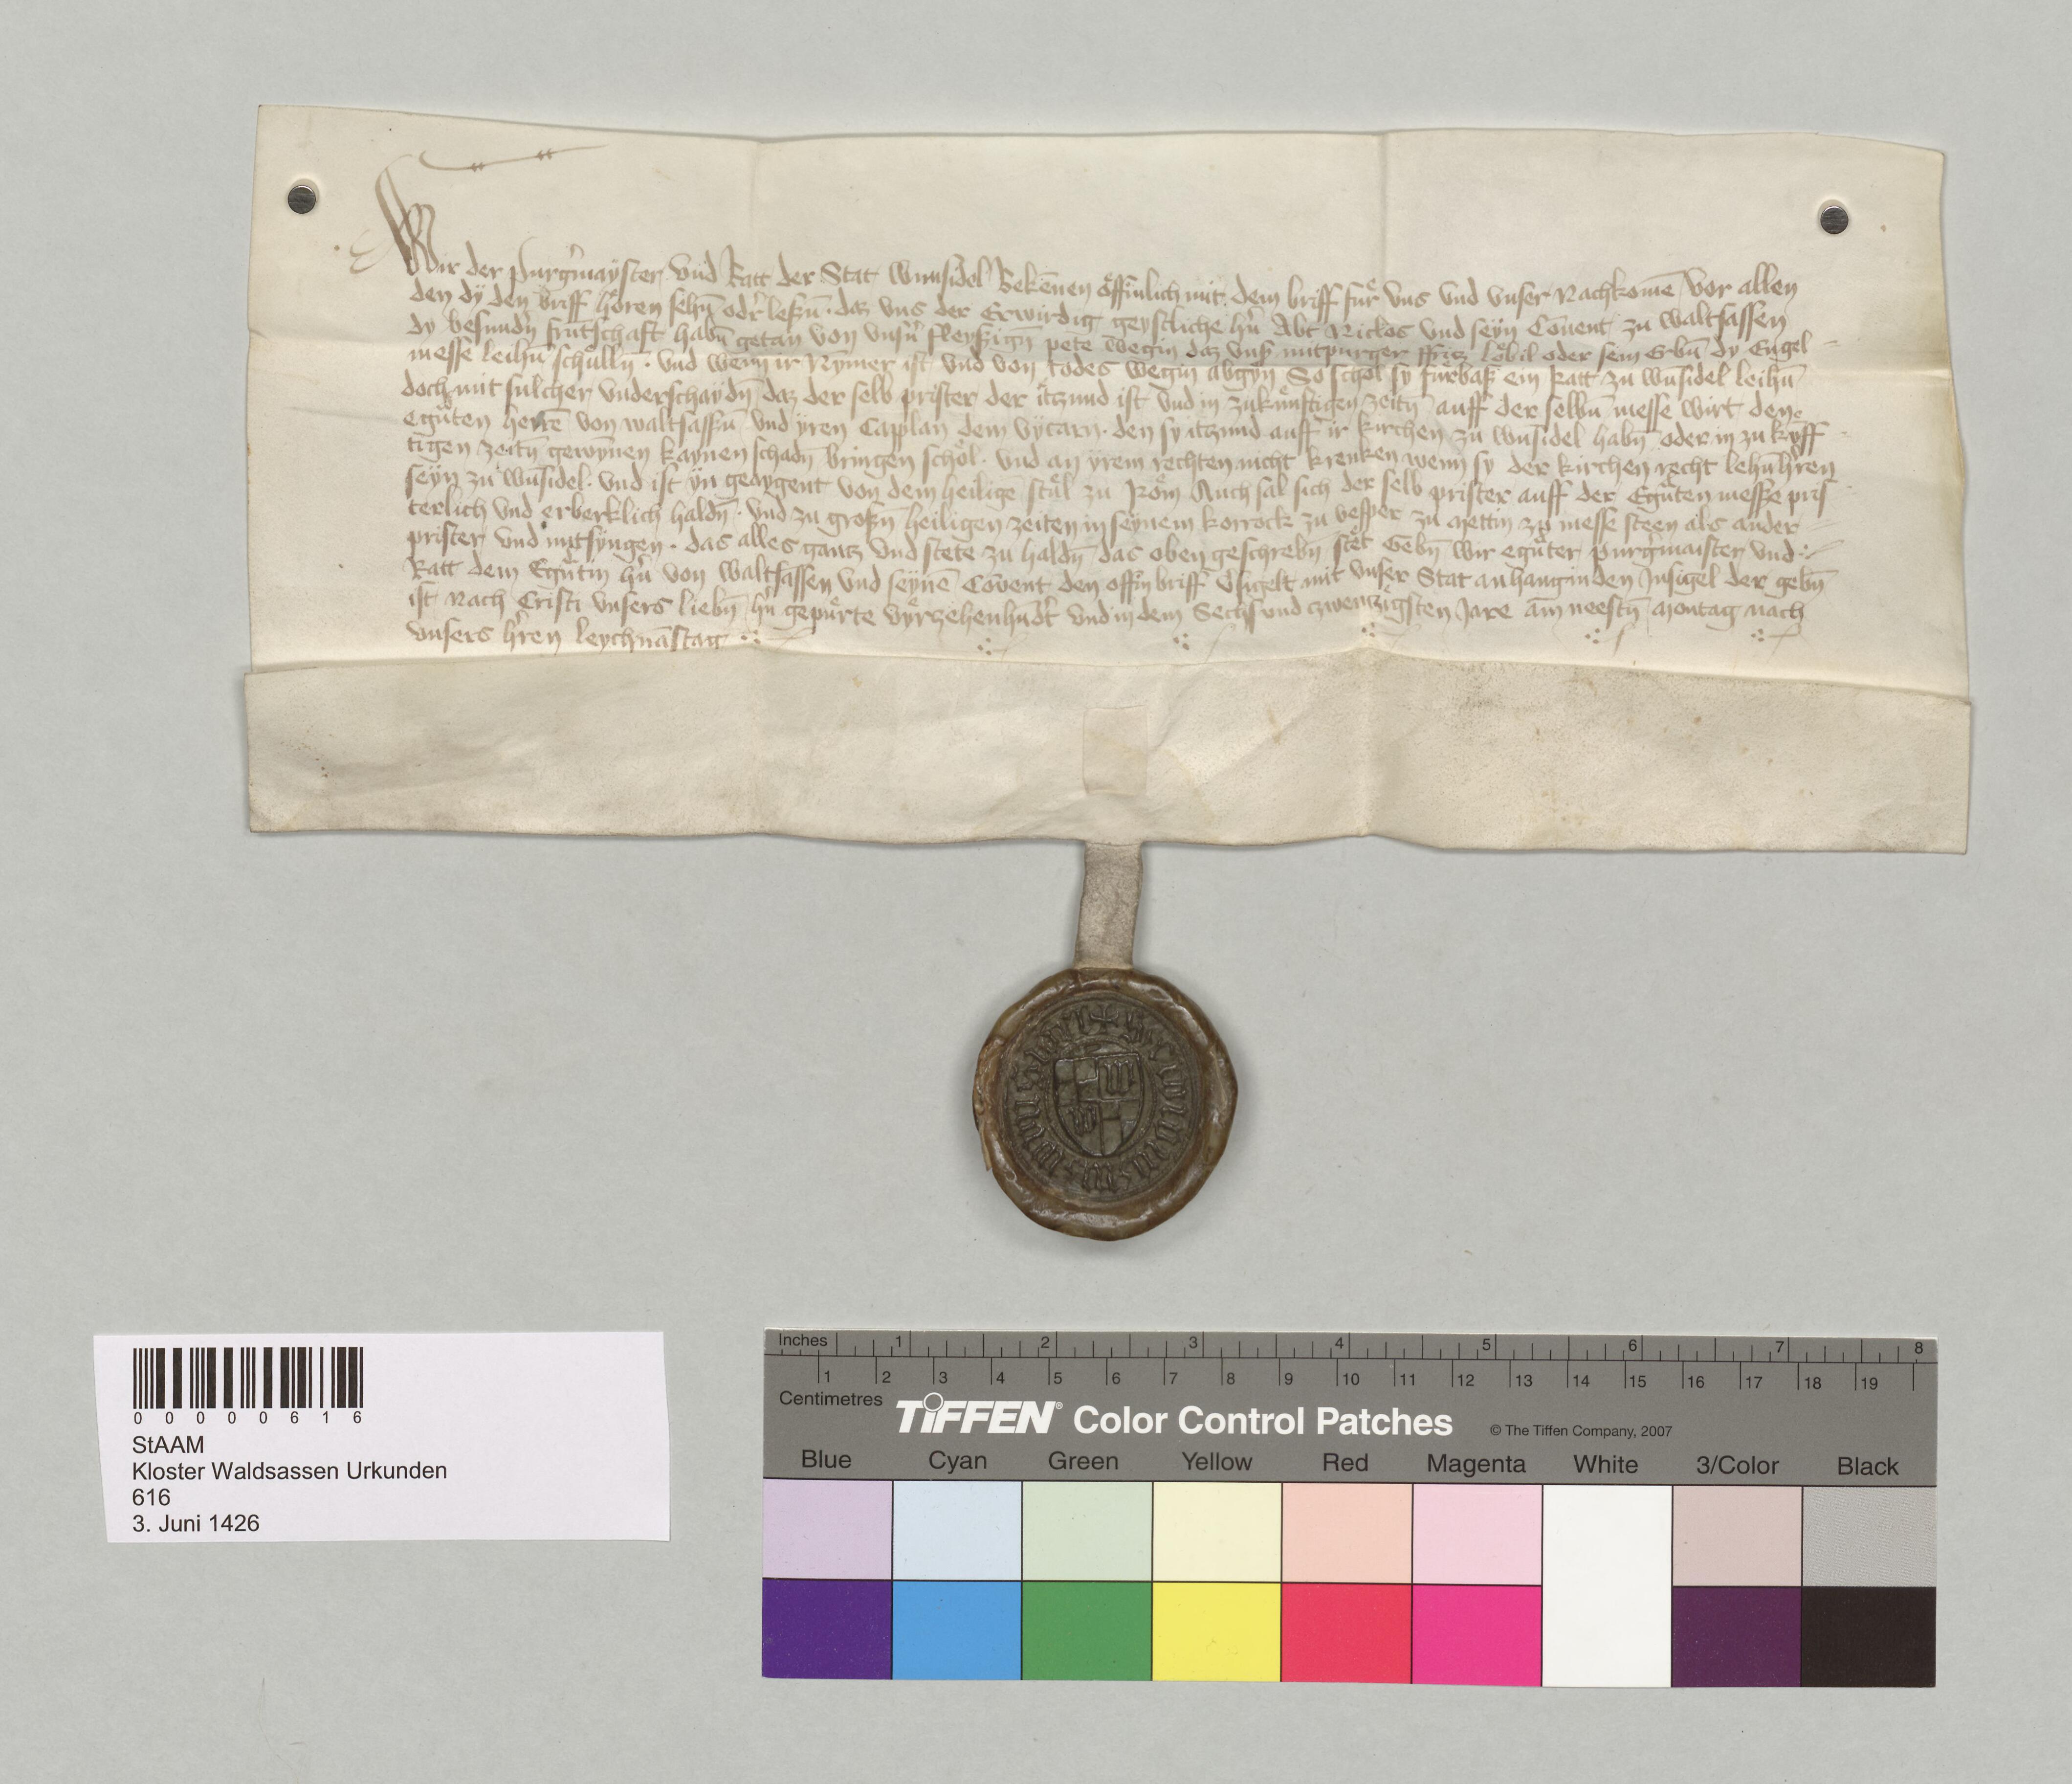 Wir der purg᷑mayster vnd Ratt der Stat wunsidel Bekēnen offinlich mit dem briff fur vns vnd vnser Nachkomē vor allen
den dÿ den briff horen sehn̄ odr᷑ leszn̄ · daz vns der Erwirdig geystliche hr̄n Abt Niclos vnd seyn Cōuent zu waltsassen
dy besundn̄ frūtschaft habn̄ getan von vnsn̄ fleyszign̄ pete wegin daz vnsz mitpurger ffricz lobil oder sein Erbn̄ dy Engel
messe leihn̄ schulln̄ · vnd wenn ir Nymer ist vnd von todes wegin abgyn So schol sy furbasz ein Ratt zu wūsidel leihn̄
doch mit sulcher vnderschaydn̄ daz der selb prister der itzund ist vnd in zukunftigen zeitn̄ auff der selbn̄ messe wirt den
eguten herrē von waltsassn̄ vnd yren Capplan dem vycarn · den sy itzund auff ir kirchen zu wūsidel habn̄ oder in zu kyff
tigen zeitn̄ gewynnen kaynen schadn̄ bringen schol · vnd an yrem rechten nicht krenken wenn sy der kirchen recht lehnhr̄en
seyn zu wūsidel · vnd ist yn geaygent von dem heilige stul zu Rom Auch sal sich der selb prister auff der Eguten messe pris
terlich vnd erberklich haldn̄ · vnd zu groszn̄ heiligen zeiten in seynem korrock zu vesper zu mettin zu messe steen als ander
prister vnd mitsyngen · das alles gantz vnd stete zu haldn̄ das oben geschrebn̄ stet Gebn̄ wir eguter purg᷑maister vnd
Ratt dem Egutin hr̄n von waltsassen vnd seynē Cōuent den offin briff v᷑sigelt mit vnser Stat anhanginden Insigel der gebn̄
ist Nach Cristi vnsers liebn̄ hr̄n gepurte vyrzehenhūdt᷑ vnd in dem Sechs vnd czwenczigsten Jare am neestn̄ Montag nach
vnsers hr̄ren leychnāstag
0 0 0 0 0 6 1 6
StAAM
Kloster Waldsassen Urkunden
616
3. Juni 1426
Inches 1 2 3 4 5 6 7 8
1 2 3 4 5 6 7 8 9 10 11 12 13 14 15 16 17 18 19
Centimetres
TIFFEN® Color Control Patches © The Tiffen Company, 2007
Blue Cyan Green Yellow Red Magenta White 3/Color Black